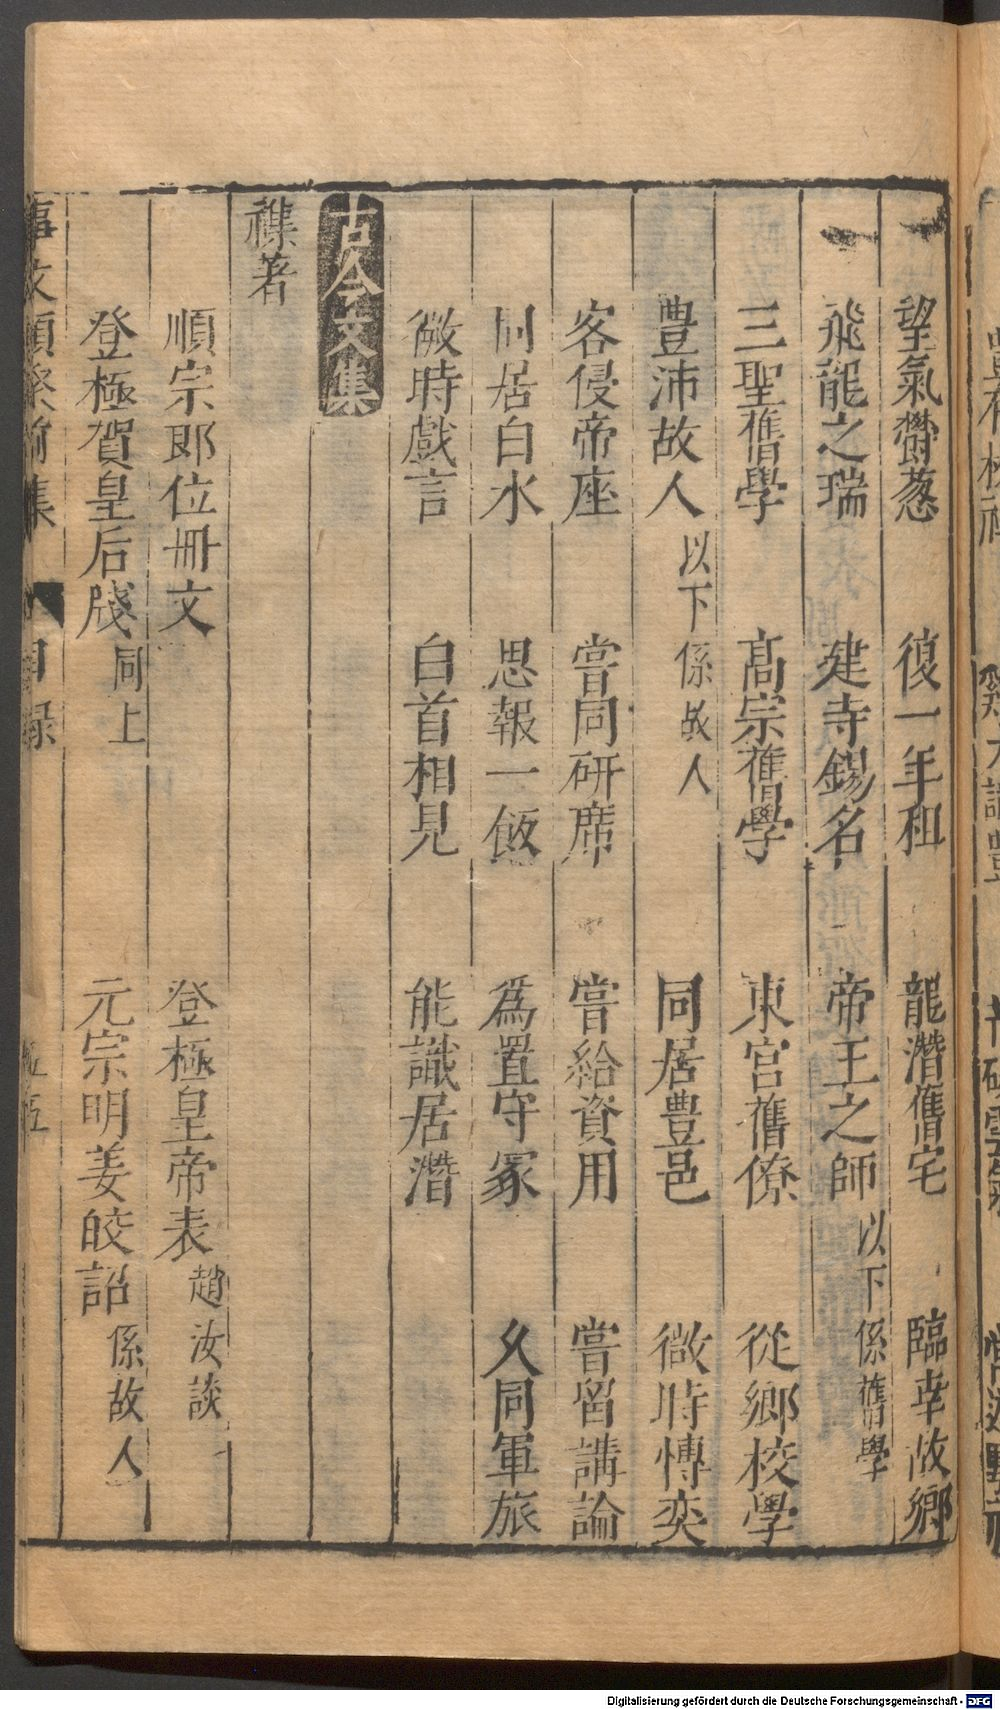 望氣鬱葱　復一年租　龍潛舊宅　臨幸故鄉
飛龍之瑞　建寺錫名　帝王之師 以下係舊學
三聖舊學　髙宗舊學　東宮舊僚　從鄉校學
豊沛故人 以下係故人　同居豊邑　微時愽奕
客侵帝座　嘗同研席　嘗給資用　嘗留講論
同居白水　思報一飯　爲置守冢　久同軍旅
微時戲言　白首相見　能識居潛
古今文集
襍著
順宗郎位冊文　登極皇帝表 趙汝談
登極賀皇后牋 同上　元宗明姜皎詔 係故人
事文類聚前集　目録
Digitalisierung gefördert durch die Deutsche Forschungsgemeinschaft - DFG